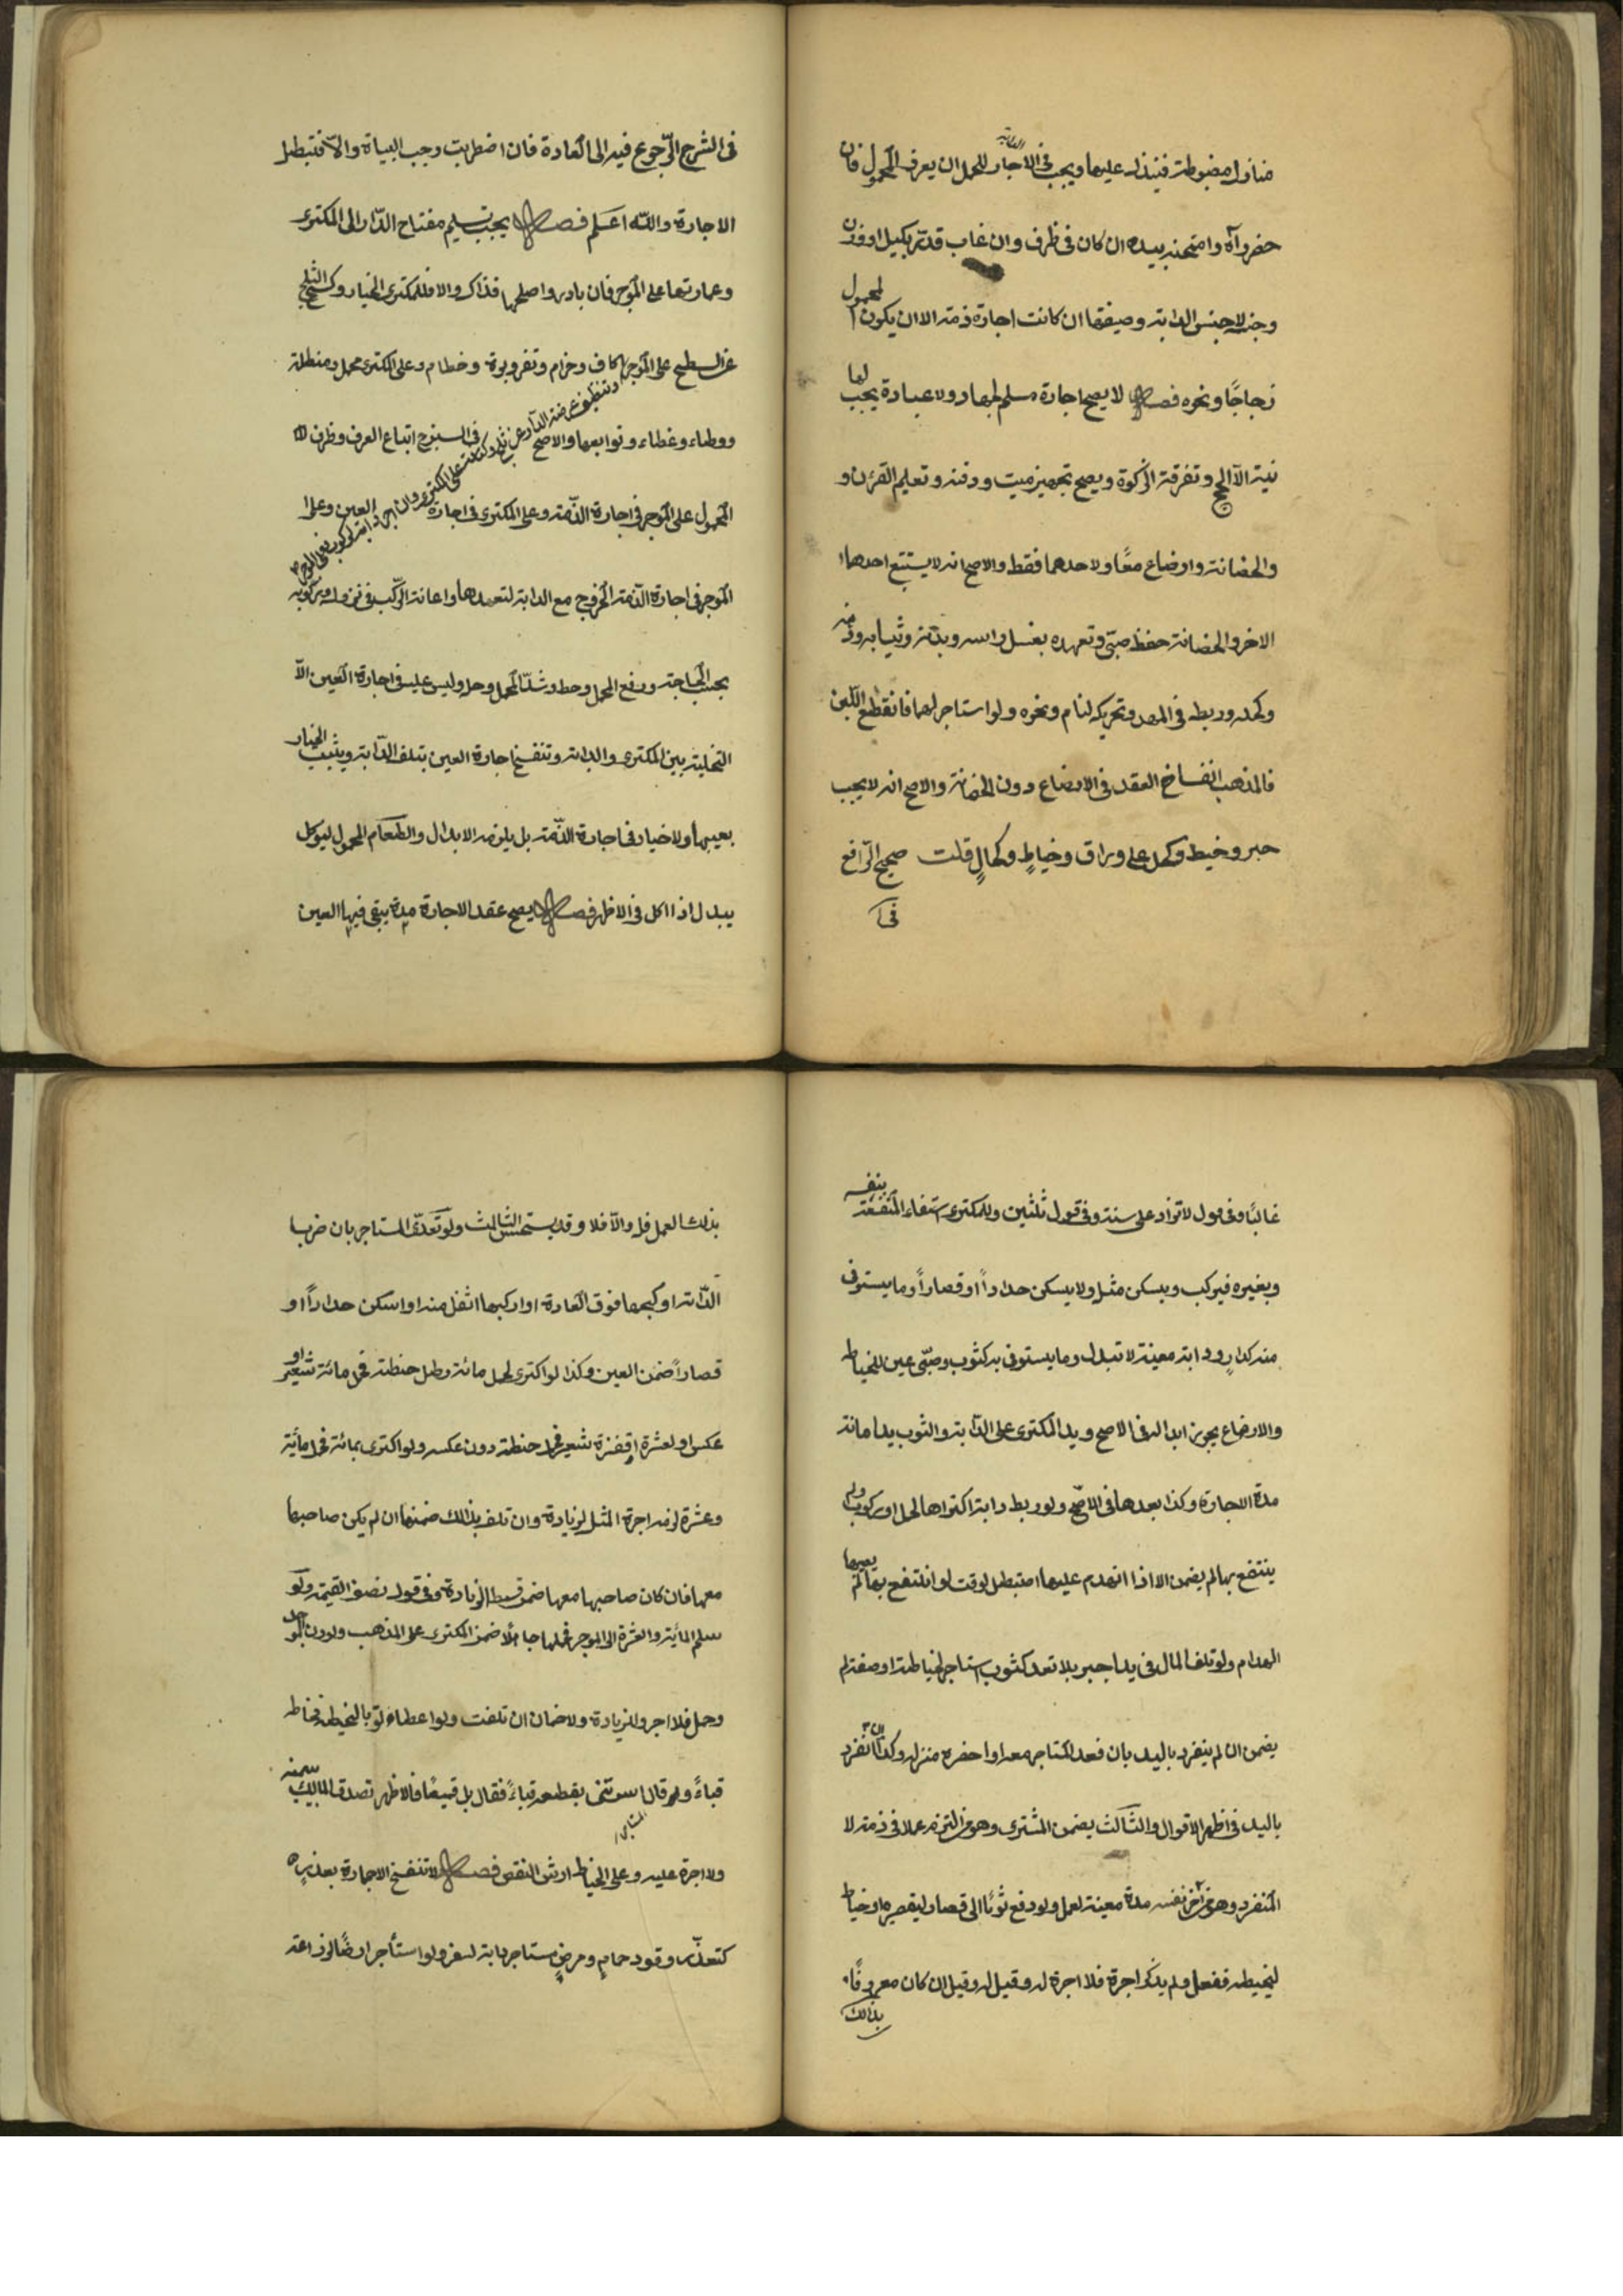 منازل مضبوطة فينزل عليها ويجب في الايجار للحمل ان يعرف المحمول فان
حضر رآه وامتحنه بيده ان كان في ظرف وان غاب قدر بكيل او وزن
وجنسه لا جنس الدابة وصفتها ان كانت اجارة ذمة الا ان يكون المحمول
زجاجًا ونحوه فصل لا يصح اجارة مسلم لجهاد ولا عبادة يجب لها
نية الا لحج وتفرقة الزكوة ويصح تجهيز ميت ودفنه وتعليم القرءن و
والحضانة وارضاع معًا ولاحدهما فقط والاصح انه لا يستتبع احدهما
الاخر والحضانة حفظ صبي وتعهده بغسل راسه وبدنه وثيابه ودهنه
وكحله وربطه في المهد وتحريكه لينام ونحوه ولو استاجر لهما فانقطع اللبن
فالمذهب انفساخ العقد في الارضاع دون الحضانة والاصح انه لا يجب
حبر وخيط وكحل على وراق وخياط وكحال قلت صحيح الرافع
في
في الشرح الرجوع فيه الى العادة فان اضطربت وجب البيان والا فتبطل
الاجارة والله اعلم فصل يجب تسليم مفتاح الدار الى المكترى
وعمارتها على الموجر فان بادر واصلحها فذاك والا فللمكترى الخيار وكسح الثلج
عن السطح على الموجر اكاف وحزام وثفر وبرة وخطام وعلى المكترى محمل ومظلة
وتنظيف عرصة الدار عن ثلج وكناسة على المكترى وان اجر دابة لركوب فعلى الموجر
ووطاء وغطاء وتوابعها والاصح في السرج اتباع العرف وظرف
المحمول على الموجر في اجارة الذمة وعلى المكترى في اجارة العين وعلى
الموجر في اجارة الذمة الخروج مع الدابة لتعهدها واعانة الركب في نزوله وركوبه
بحسب الحاجة ورفع المحمل وحط وشد المحمل وحل وليس عليه في اجارة العين الا
التخلية بين المكترى والدابة وتنفسخ اجارة العين بتلف الدابة ويثبت الخيار
بعيبها ولا خيار في اجارة الذمة بل يلزمه الابدال والطعام المحمول ليوكل
يبدل اذا اكل في الاظهر فصل يصح عقد الاجارة مدة يبقى فيها العين
غالبًا وفي قول لا تزاد على سنة وفي قول ثلثين وللمكترى استيفاء المنفعة بنفسه
وبغيره فيركب ويسكن مثله ولا يسكن حدادًا او قصارًا وما يستوفى
منه كدار ودابة معينة لا تبدل وما يستوفى به كثوب وصبي عين للخياطة
والارضاع يجوز ابداله في الاصح ويد المكترى على الدابة والثوب يد امانة
مدة الاجارة وكذا بعدها في الاصح ولو ربط دابة اكتراها لحمل او ركوب ولم
ينتفع بها لم يضمن الا اذا انهدم عليها اصتبطل لوقت لو انتفع بها لم يصبها
الهدام ولو تلف المال في يد اجير بلا تعد كثوب استاجر لخياطته او صبغه لم
يضمن ان لم ينفرد باليد بان قعد المستاجر معه او احضره منزله وكذا ان انفرد
باليد في اظهر الاقوال والثالث يضمن المشترى وهو من التزم عملا في ذمته لا
المنفرد وهو من آجر نفسه مدة معينة لعمل ولو دفع ثوبًا الى قصار ليقصره او خياط
ليخيطه ففعل ولم يذكر اجرة فلا اجرة له وقيل له وقيل ان كان معروفًا
بذلك
بذلك العمل فله والا فلا وقد يستحسن الثالث ولو تعدى المستاجر بان ضرب
الدابة او كبحها فوق العادة او اركبها اثقل منه او اسكن حدادًا او
قصارًا ضمن العين وكذا لو اكترى لحمل مائة رطل حنطة فحمل مائة شعير او
عكس او لعشرة اقفزة شعير فحمل حنطة دون عكسه ولو اكترى بمائة فحمل مائة
وعشرة لزمه اجرة المثل لزيادة وان تلف بذلك ضمنها ان لم يكن صاحبها
معها فان كان صاحبها معها ضمن قسط الزيادة وفي قول نصف القيمة ولو
سلم المائة والعشرة الى الموجر فحملها جاهلا ضمن المكترى على المذهب ولو وزن الموجر
وحمل فلا اجر والزيادة ولا ضمان ان تلفت ولو اعطاه ثوبا ليخيطه فخاطه
قباءً وقال امرتنى بقطعه قباءً فقال بل قميصًا فالاظهر تصدق المالك بيمينه
ولا اجرة عليه وعلى الخياط ارش النقص فصل لا تنفسخ الاجارة بعذر
كتعذر وقود حمام ومرض مستاجر دابة لسفر ولو استأجر ارضًا لزراعة